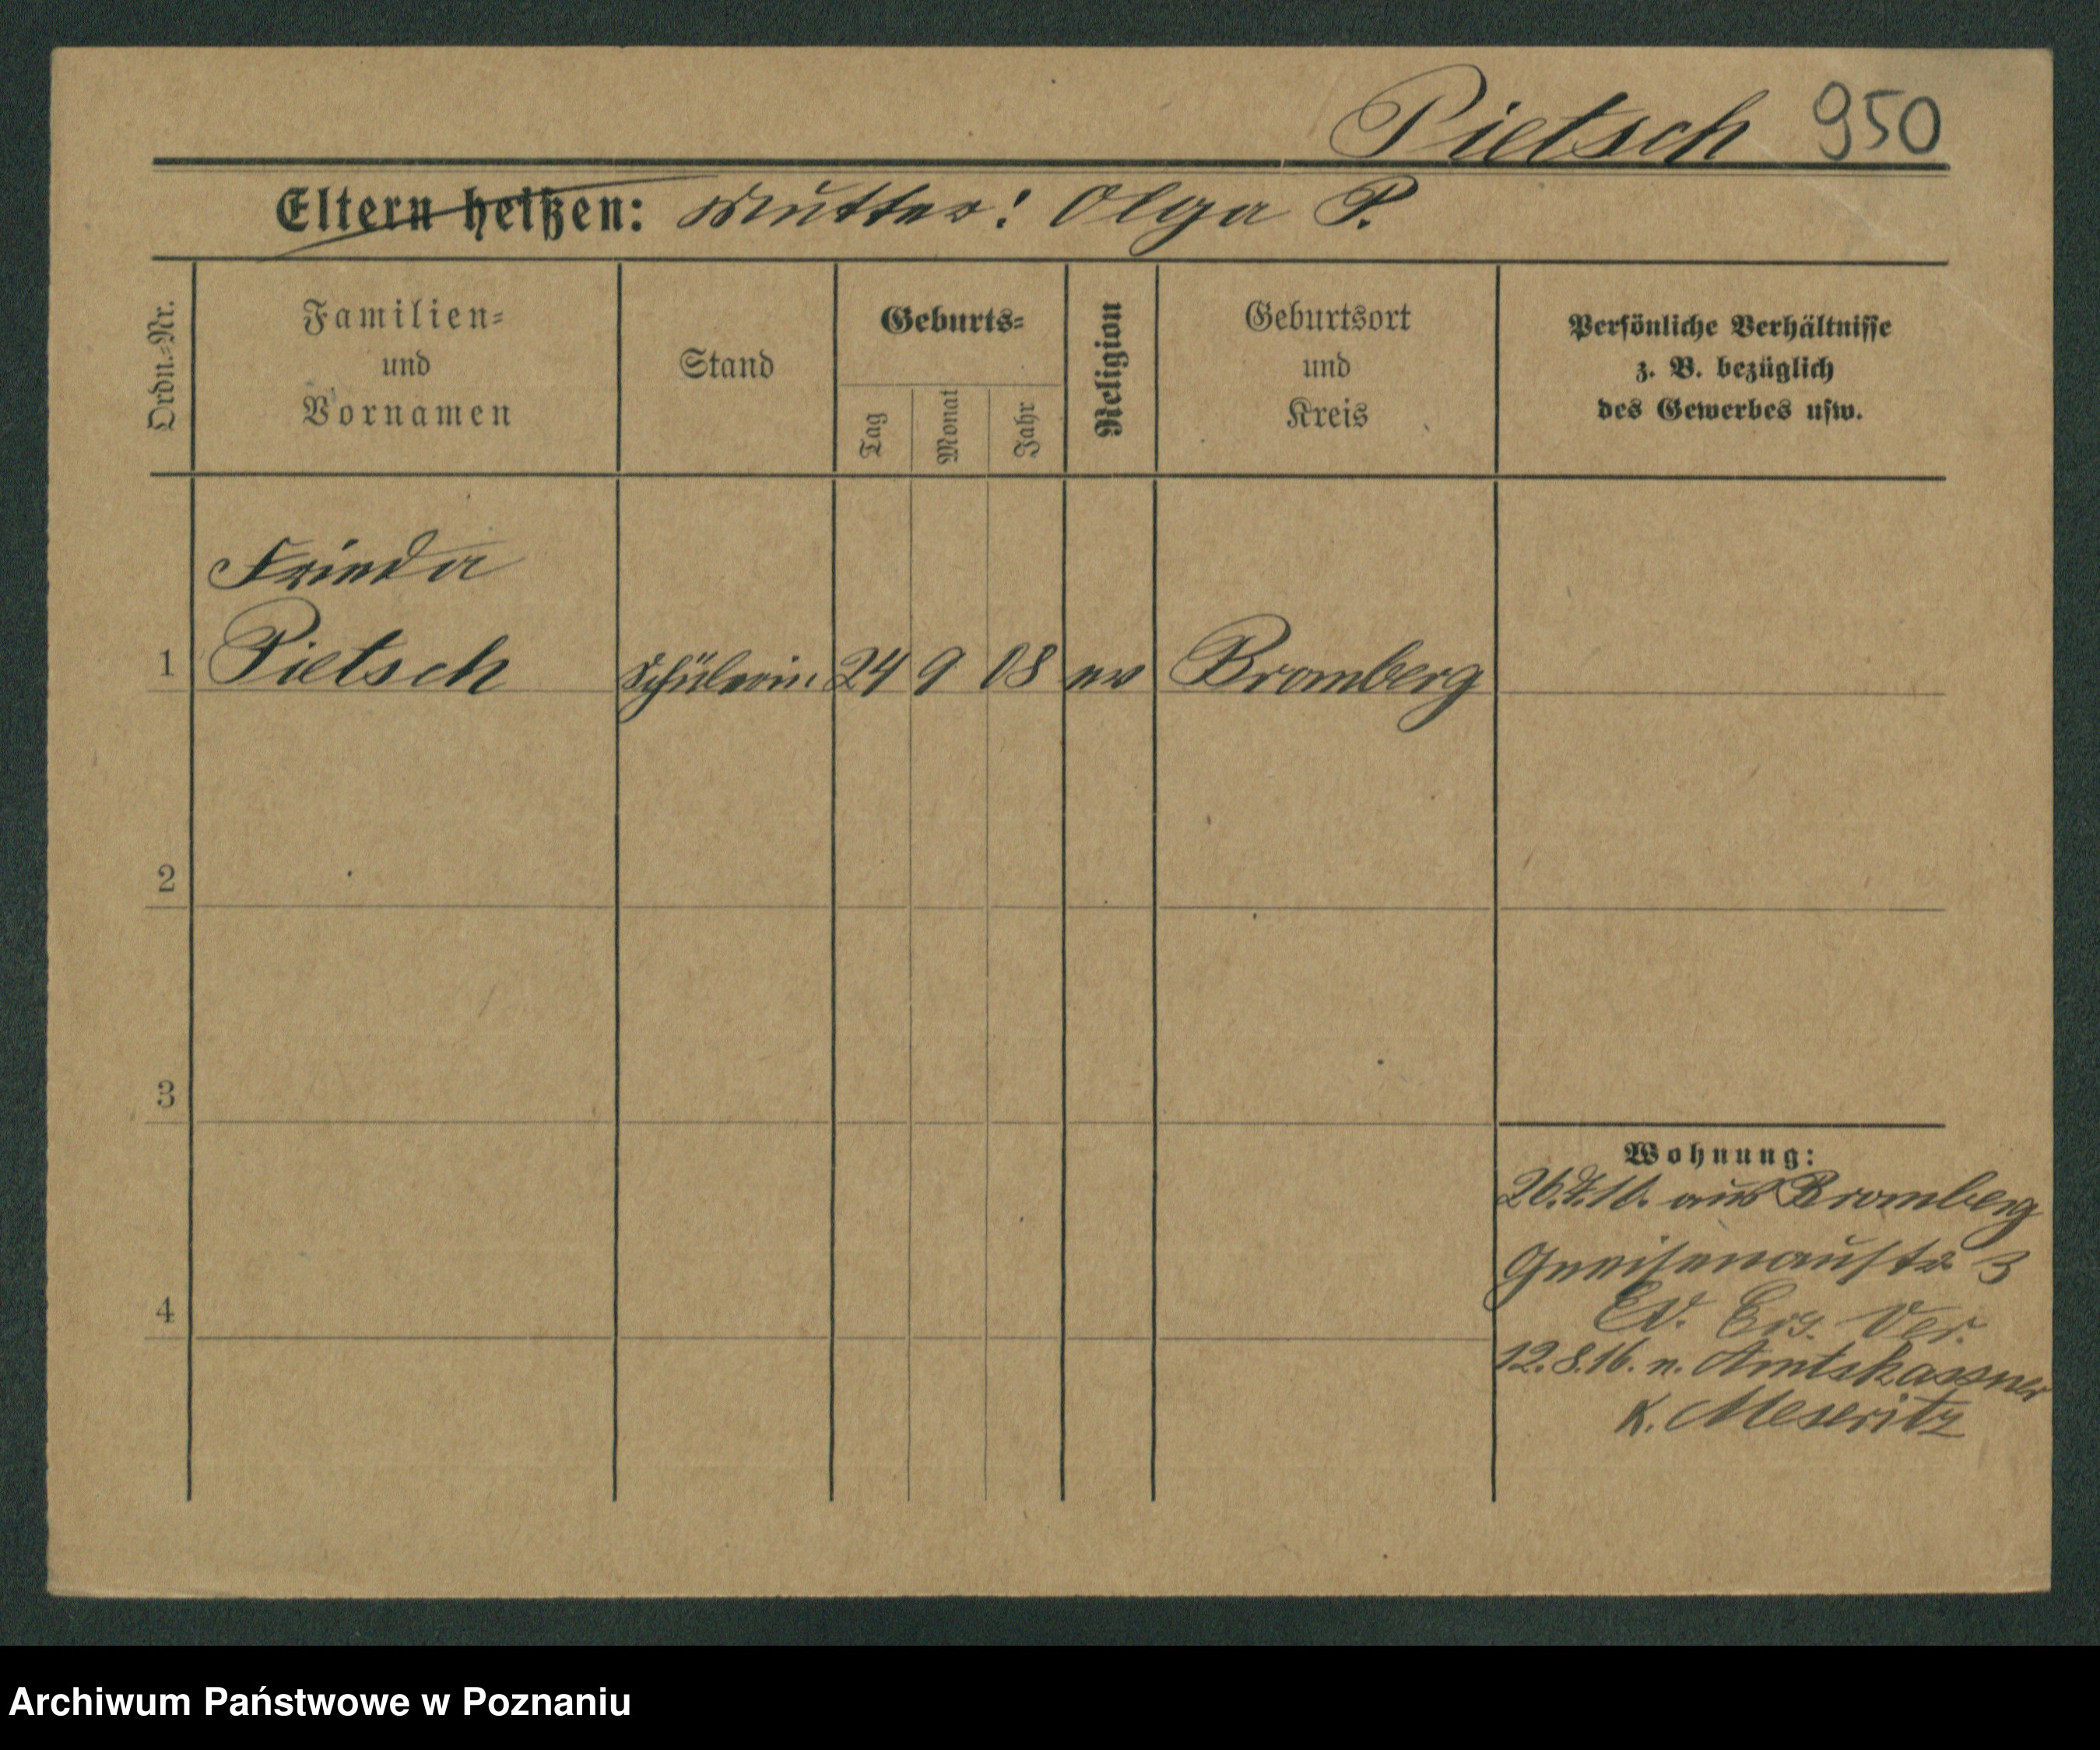 Pietsch 950
Eltern heißen: Mutter: Olga P.
Ordn.-Nr.
Familien-
und
Vornamen
Stand
Geburts-
Tag
Monat
Jahr
Religion
Geburtsort
und
Kreis
Persönliche Verhältnisse
z. B. bezüglich
des Gewerbes usw.
Frieda
1 Pietsch Schülerin 24 9 08 ev Bromberg
2
3
4
Wohnung:
aus Bromberg
Gneisenaustr 3
Ev.
12.8.16. n. Amtskassner
K. Meseritz
Archiwum Państwowe w Poznaniu